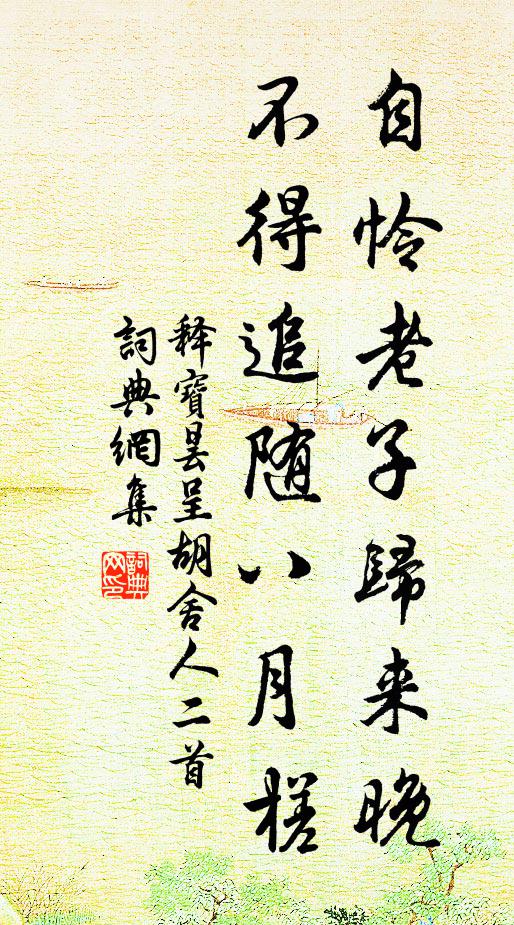 自怜老子歸来晚
不得追随八月槎
释寶曇呈胡舍人二首
詞典網集
詞典网印